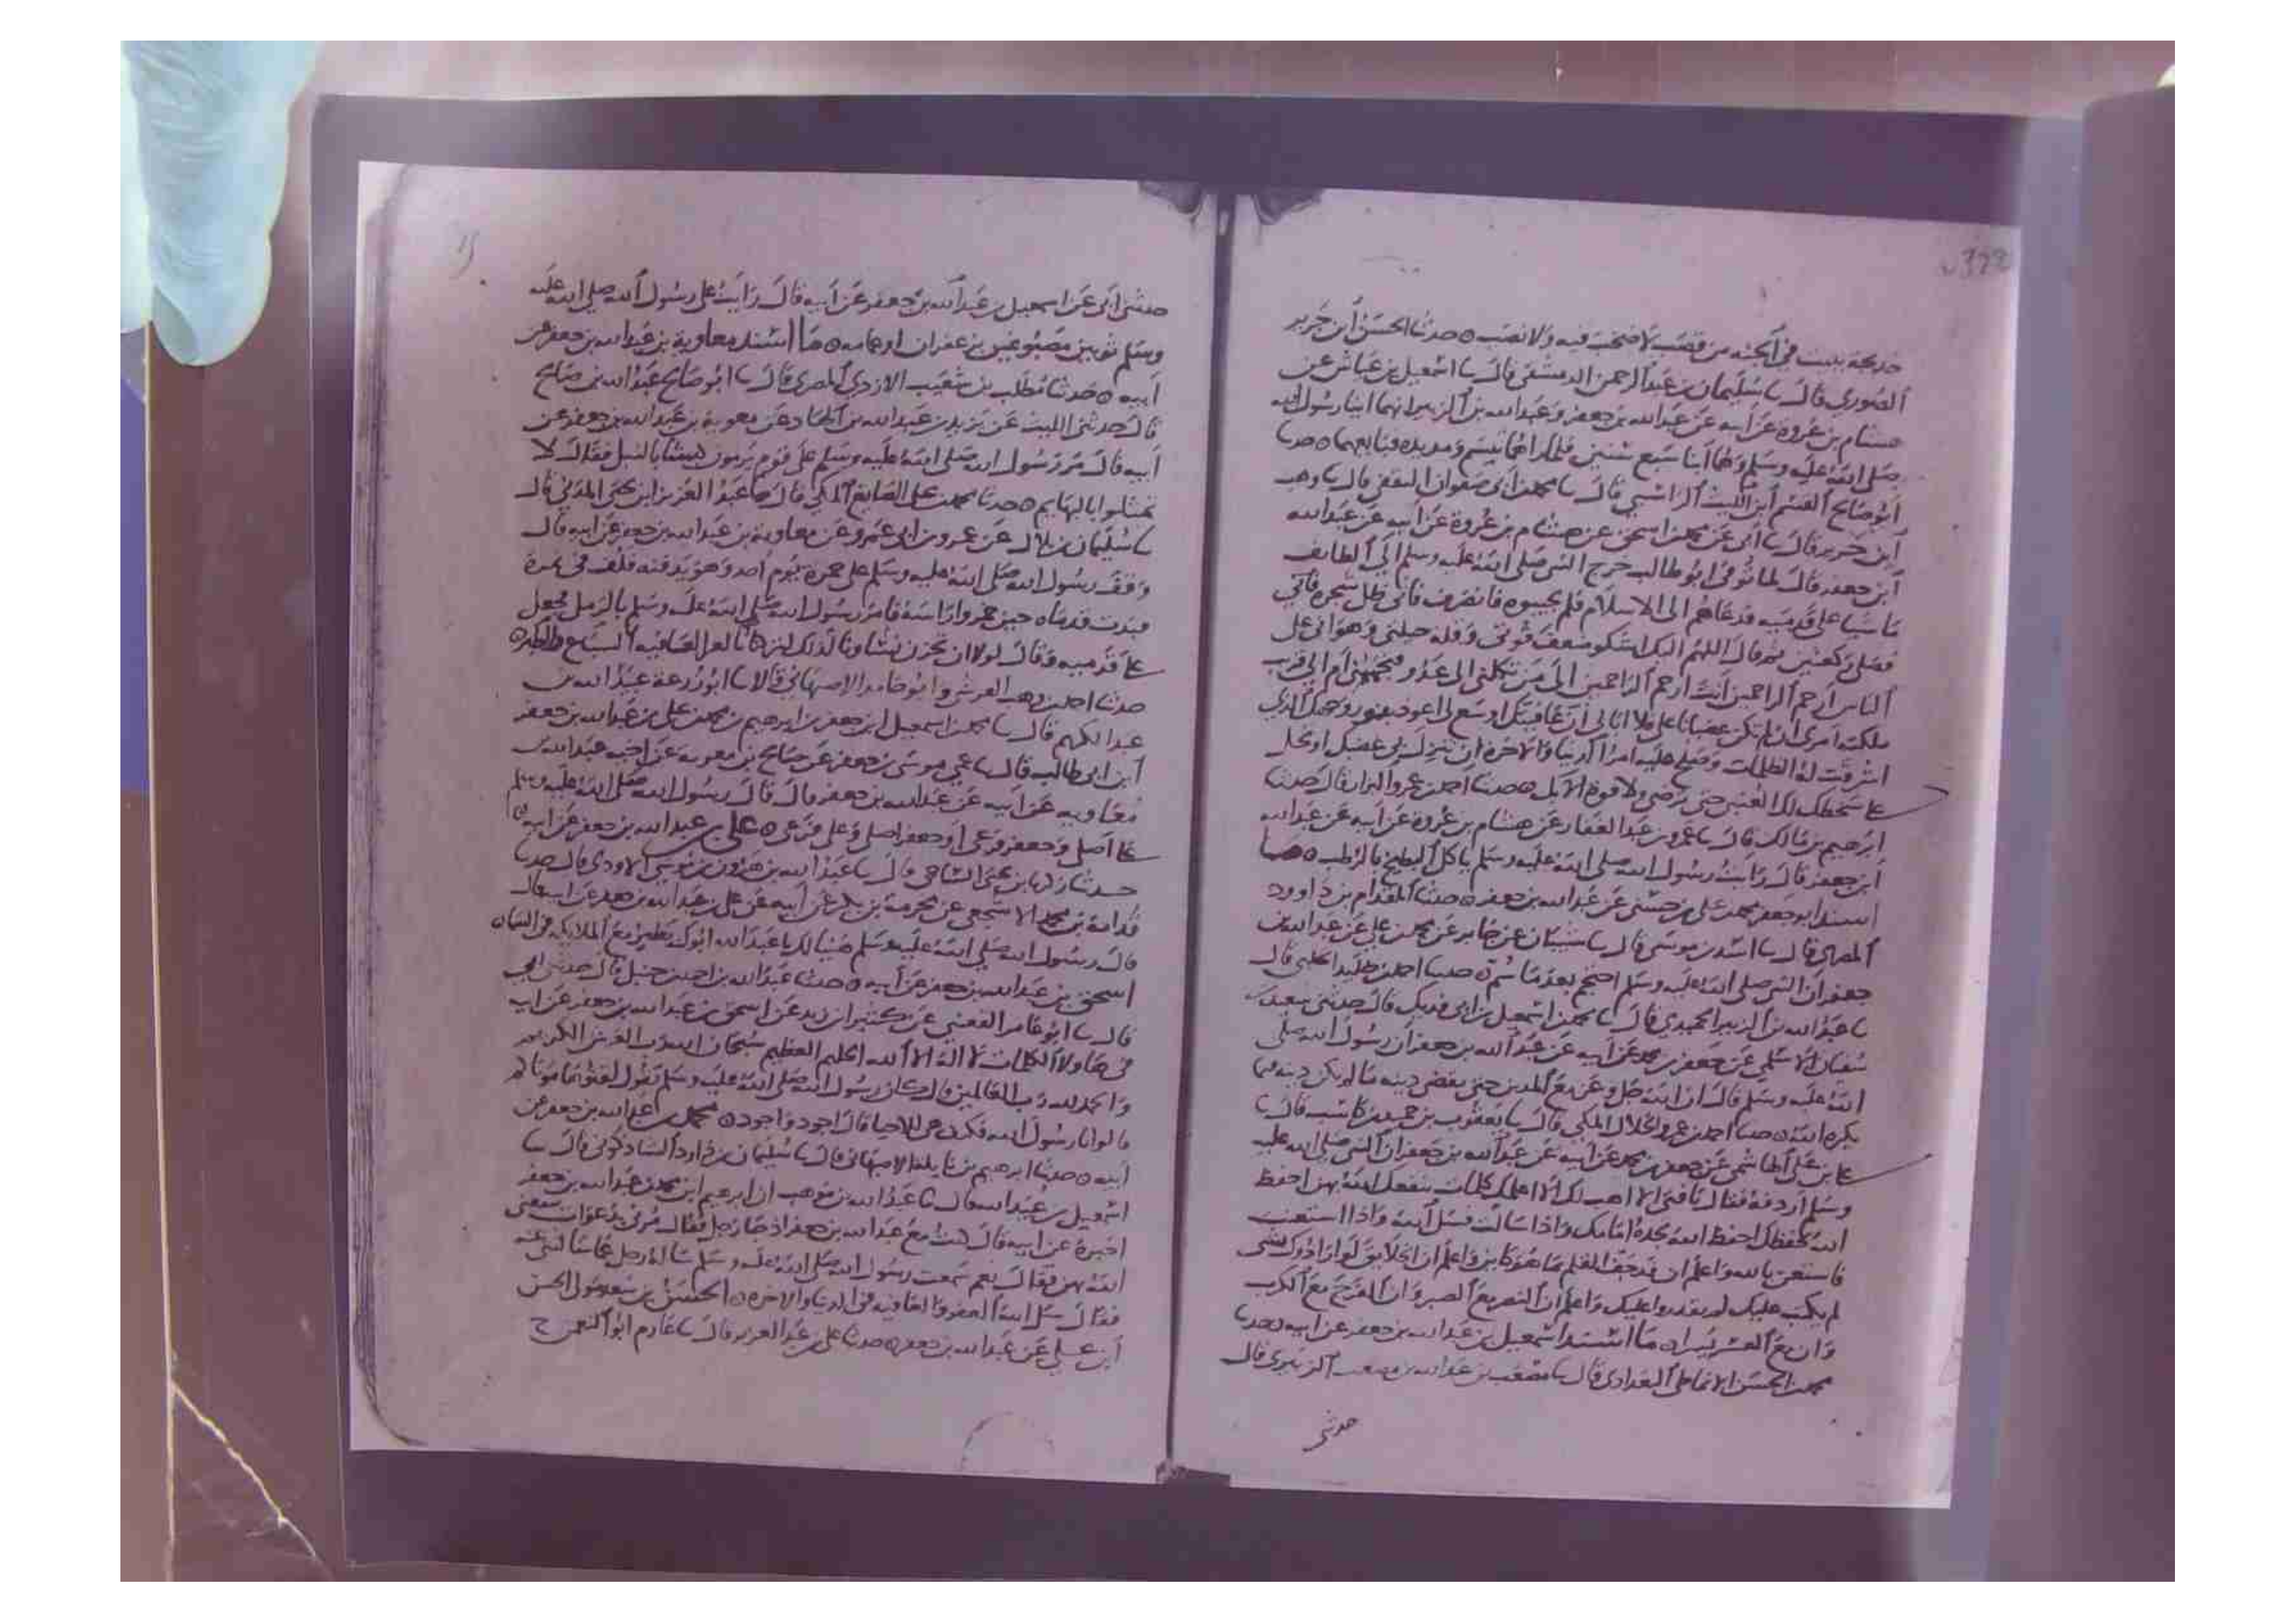 خديجة ببيت في الجنة من قصب لا صخب فيه ولا نصب ٥ حدثنا الحسن ابن جرير
الصوري قال ثنا سليمان بن عبد الرحمن الدمشقي قال ثنا اسمعيل بن عياش عن
هشام بن عروة عن ابيه عن عبد الله بن جعفر وعبد الله بن الزبير انهما اتيا رسول الله
صلى الله عليه وسلم وهما ابنا سبع سنين فلما راهما تبسم ومد يده فبايعهما ٥ حدثنا
ابو صالح القسم ابن الليث الراسبي قال ثنا محمد بن ابي صفوان الثقفي قال ثنا وهب
ابن جرير قال ثنا ابي عن محمد بن اسحق عن هشام بن عروة عن ابيه عن عبد الله
ابن جعفر قال لما توفي ابو طالب خرج النبي صلى الله عليه وسلم الى الطايف
ماشيا على قدميه فدعاهم الى الاسلام فلم يجيبوه فانصرف فاتى ظل شجرة فاتي
فصلى ركعتين ثم قال اللهم اليك اشكو ضعف قوتي وقلة حيلتي وهواني على
الناس ارحم الراحمين انت ارحم الراحمين الى من تكلني الى عدو يتجهمني ام الى قريب
ملكته امري ان لم تكن غضبانا علي فلا ابالي ان عافيتك اوسع لي اعوذ بنور وجهك الذي
اشرقت له الظلمات وصلح عليه امر الدنيا والاخرة ان تنزل بي غضبك او تحل
علي سخطك لك العتبى حتى ترضى ولا قوة الا بك ٥ حدثنا احمد بن عمرو البزار قال حدثنا
ابرهيم بن مالك قال ثنا عمرو بن عبد الغفار عن هشام بن عروة عن ابيه عن عبد الله
ابن جعفر قال رايت رسول الله صلى الله عليه وسلم ياكل البطيخ بالرطب ٥ ما
اسند ابو جعفر محمد بن علي بن حسين عن عبد الله بن جعفر ٥ حدثنا المقدام بن داوود
المصري قال ثنا اسد بن موسى قال ثنا شيبان عن جابر عن محمد بن علي عن عبد الله بن
جعفر ان النبي صلى الله عليه وسلم احتجم بعدما سم ٥ حدثنا احمد بن خليد الحلبي قال
ثنا عبد الله بن الزبير الحميدي قال ثنا محمد بن اسمعيل بن ابي فديك قال حدثني سعيد بن
سفيان الاسلمي عن جعفر بن محمد عن ابيه عن عبد الله بن جعفر ان رسول الله صلى
الله عليه وسلم قال ان الله جل وعز مع المدين حتى يقضى دينه ما لم يكن دينه فيما
يكره الله ٥ حدثنا احمد بن عمرو الخلال المكي قال ثنا يعقوب بن حميد بن كاسب قال ثنا
علي بن ابي علي الهاشمي عن جعفر بن محمد عن ابيه عن عبد الله بن جعفر ان النبي صلى الله عليه
وسلم اردفه فقال يا فتى الا اهب لك الا اعلمك كلمات ينفعك الله بهن احفظ
الله يحفظك احفظ الله تجده امامك واذا سالت فسل الله واذا استعنت
فاستعن بالله واعلم ان قد جف القلم بما هو كاين واعلم ان الخلايق لو ارادوك بشي
لم يكتب عليك لم يقدروا عليك واعلم ان النصر مع الصبر وان الفرج مع الكرب
وان مع العسر يسرا ٥ ما اسند اسمعيل بن عبد الله بن جعفر عن ابيه ٥ حدثنا
محمد بن الحسن الانماطي البغدادي قال ثنا مصعب بن عبد الله بن مصعب الزبيري قال
حدثني
حدثني ابي عن اسمعيل بن عبد الله بن جعفر عن ابيه قال رايت على رسول الله صلى الله عليه
وسلم ثوبين مصبوغين بزعفران او عمامه ٥ ما اسند معاوية بن عبد الله بن جعفر عن
ابيه ٥ حدثنا مطلب بن شعيب الازدي المصري قال ثنا ابو صالح عبد الله بن صالح
قال حدثني الليث عن يزيد بن عبد الله بن الهاد عن معوية بن عبد الله بن جعفر عن
ابيه قال مر رسول الله صلى الله عليه وسلم على قوم يرمون كبشا بالنبل فقال لا
تمثلوا بالبهايم ٥ حدثنا محمد بن علي الصايغ المكي قال ثنا عبد العزيز ابن يحيى المدني قال
ثنا سليمان بن بلال عن عمرو بن ابي عمرو عن معاوية بن عبد الله بن جعفر عن ابيه قال
وقف رسول الله صلى الله عليه وسلم على حمزة يوم احد وهو يدفنه فلف في نمرة
فبدت قدماه حين خمروا راسه فامر رسول الله صلى الله عليه وسلم بالرمل فجعل
على قدميه وقال لولا ان تحزن نساونا لذلك لتركناه بالعرا لعافية السباع والطير ٥
حدثنا احمد بن زهير وابو حامد الاصبهاني قالا ثنا ابو زرعة عبيد الله بن
عبد الكريم قال ثنا محمد بن اسمعيل بن جعفر بن ابرهيم بن محمد بن علي بن عبد الله بن جعفر
ابن ابي طالب قال ثنا عمي موسى بن جعفر عن صالح بن معوية عن اخيه عبد الله بن
معاوية عن ابيه عن عبد الله بن جعفر قال قال رسول الله صلى الله عليه وسلم
علي اصلي وجعفر فرعي او جعفر اصلي وعلي فرعي ٥ علي بن عبد الله بن جعفر عن ابيه ٥
حدثنا زكريا بن يحيى الساجي قال ثنا عبد الله بن هرون بن موسى الاودي قال حدثنا
قدامة بن محمد الاشجعي عن مخرمة بن بكير عن ابيه عن علي بن عبد الله بن جعفر عن ابيه قال
قال رسول الله صلى الله عليه وسلم هنيا لك يا عبد الله ابوك يطير مع الملايكة في السماء
اسحق بن عبد الله بن جعفر عن ابيه ٥ حدثنا عبد الله بن احمد بن حنبل قال حدثني ابي
قال ثنا ابو عامر العقدي عن كثير بن زيد عن اسحق بن عبد الله بن جعفر عن ابيه
في هاولا الكلمات لا اله الا الله الحليم العظيم سبحان الله رب العرش الكريم
والحمد لله رب العالمين قال كان رسول الله صلى الله عليه وسلم يقول لقنوها موتاكم
قالوا يا رسول الله فكيف هي للاحيا قال اجود واجود ٥ محمد بن عبد الله بن جعفر عن
ابيه ٥ حدثنا ابرهيم بن نايلة الاصبهاني قال ثنا سليمان بن داود الشاذكوني قال ثنا
اسمعيل بن عبد الله قال ثنا عبد الله بن موهب ان ابرهيم ابن محمد بن عبد الله بن جعفر
اخبره عن ابيه قال كنت مع عبد الله بن جعفر اذ جاه رجل فقال مرني بدعوات ينفعني
الله بهن فقال نعم سمعت رسول الله صلى الله عليه وسلم ساله رجل عما سالتني عنه
فقال سل الله العفو والعافية في الدنيا والاخرة ٥ الحسن بن سعد مولى الحسن
ابن علي عن عبد الله بن جعفر ٥ حدثنا علي بن عبد العزيز قال ثنا عارم ابو النعمن ح